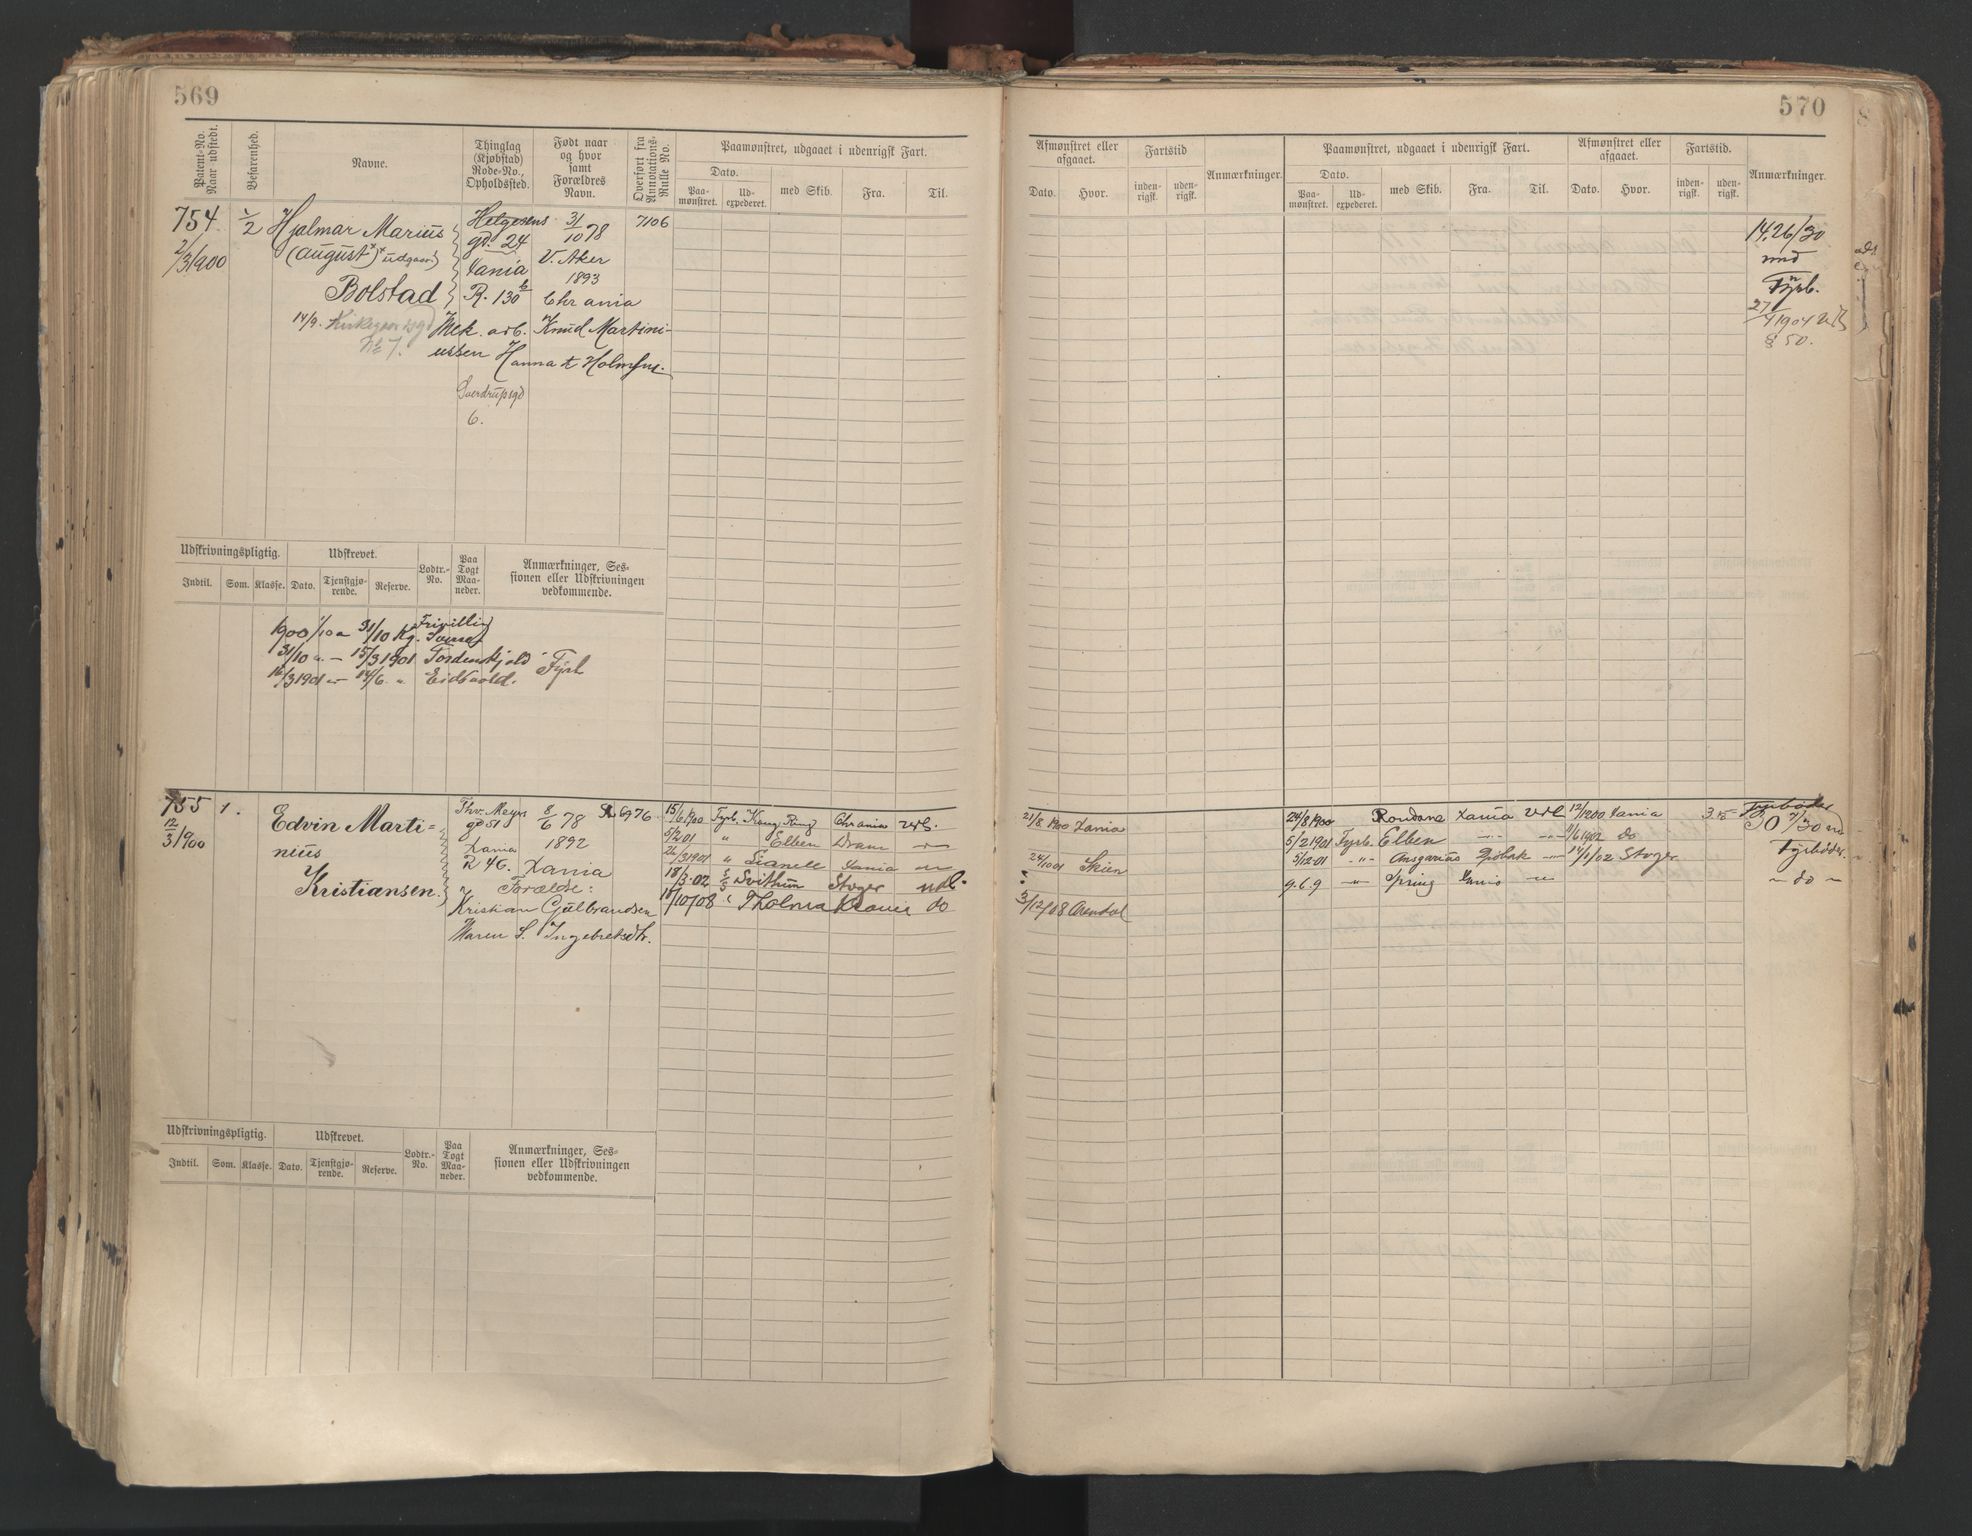 569
Patent-No. Naar udstedt.
Befarenhed.
Navne.
Thinglag (Kjøbstad) Rode-No., Opholdssted.
Født naar og hvor samt Forældres Navn.
Overført fra Annotations-Rulle No.
Paamønstret, udgaaet i udenrigsk Fart.
Dato.
Paamønstret.
Udexpederet.
med Skib.
Fra.
Til.
754
2/3 1900
1/2
Hjalmar Marius
(August) udgaar)
Bolstad
14/9. Kirkegårdsgd
No 7.
Helgesens
gd. 24
Xania
R. 130
Mek. arb.
31/10 78
V. Aker
1893
Chr ania
Knud Martini-
ussen Hanna
Sverdrupsgd
6.
7106
Udskrivningspligtig.
Udskrevet.
Indtil.
Som.
Klasse.
Dato.
Tjenstgjørende.
Reserve.
Lodtr.-No.
Paa Togt Maaneder.
Anmærkninger, Sessionen eller Udskrivningen vedkommende.
Frivillig
1900 1/10 - 31/10 Kg. Sverre
31/10 - 15/3 1901 Tordenskjold
16/3 1901 - 14/6 Eidsvold. Fyrb
755
12/3 1900
1.
Edvin Marti=
nius
Kristiansen.
Thv. Meyers
gd 51
Xania
R 46.
8/6 78
1892
Xania
Forældre:
Kristian Gulbrandsen
Maren S. Ingebretsdtr.
6976
15/6 1900 Fyrb. Kong Ring Chrania Udl.
5/2 01 " Elben Dram
26/3 1901 " Xania
18/3-02 Svithun Stvger udl.
10/10/08 " Tholma Krania do
Udskrivningspligtig.
Udskrevet.
Indtil.
Som.
Klasse.
Dato.
Tjenstgjørende.
Reserve.
Lodtr.-No.
Paa Togt Maaneder.
Anmærkninger, Sessionen eller Udskrivningen vedkommende.
570
Afmønstret eller afgaaet.
Fartstid
Dato.
Hvor.
indenrigsk.
udenrigsk.
Anmærkninger.
Paamønstret, udgaaet i udenrigsk Fart.
Dato.
Paamønstret.
Udexpederet.
med Skib.
Fra.
Til.
Afmønstret eller afgaaet.
Dato.
Hvor.
Fartstid.
indenrigsk.
udenrigsk.
Anmærkninger.
14, 26/30
md
Fyrb.
27/4 1904
§ 50.
21/8 1900 Xania
24/10 01 Skien
3/12/08 Arendal
24/8 1900 Rondane Xania Udl 12/12 00 Xania
5/2 1901 Fyrb. Elben 11/6 1901 do
5/12-01 Ansgarius Drøbak 14/1/02 Stvger
9.6.9 Spring Xania
Fyrbøder
30 7/30 md
Fyrbøder
do